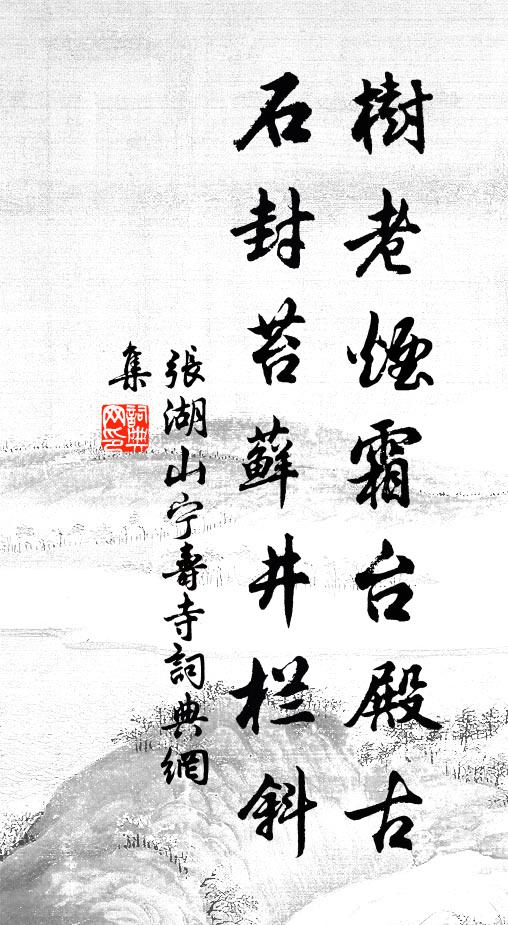 樹老煙霜台殿古
石封苔蘚井栏斜
張湖山宁壽寺詞典網
集
詞典
网印